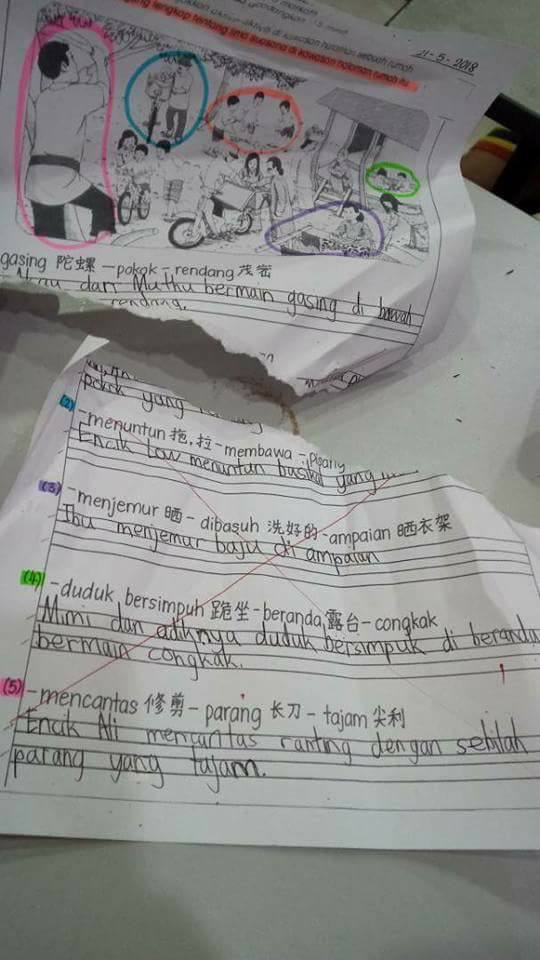 21-5-2018
lengkap tentang lima suasana di kawasan halaman rumah
gasing 陀螺 – pokok – rendang 茂密
dan Muthu bermain gasing di bawah
rendang.
pokok yang
(2) -menuntun 拖,拉 - membawa - pisang
Encik Low menuntun basikal yang
(3) -menjemur 晒 - dibasuh 洗好的 -ampaian 晒衣架
Ibu menjemur baju di ampaian
(4) -duduk bersimpuh 跪坐 - beranda 露台 - congkak
Mimi dan adiknya duduk bersimpuk di beranda
bermain congkak.
(5) -mencantas 修剪 - parang 长刀 - tajam 尖利
Encik Ali mencantas ranting dengan sebilah
parang yang tajam.